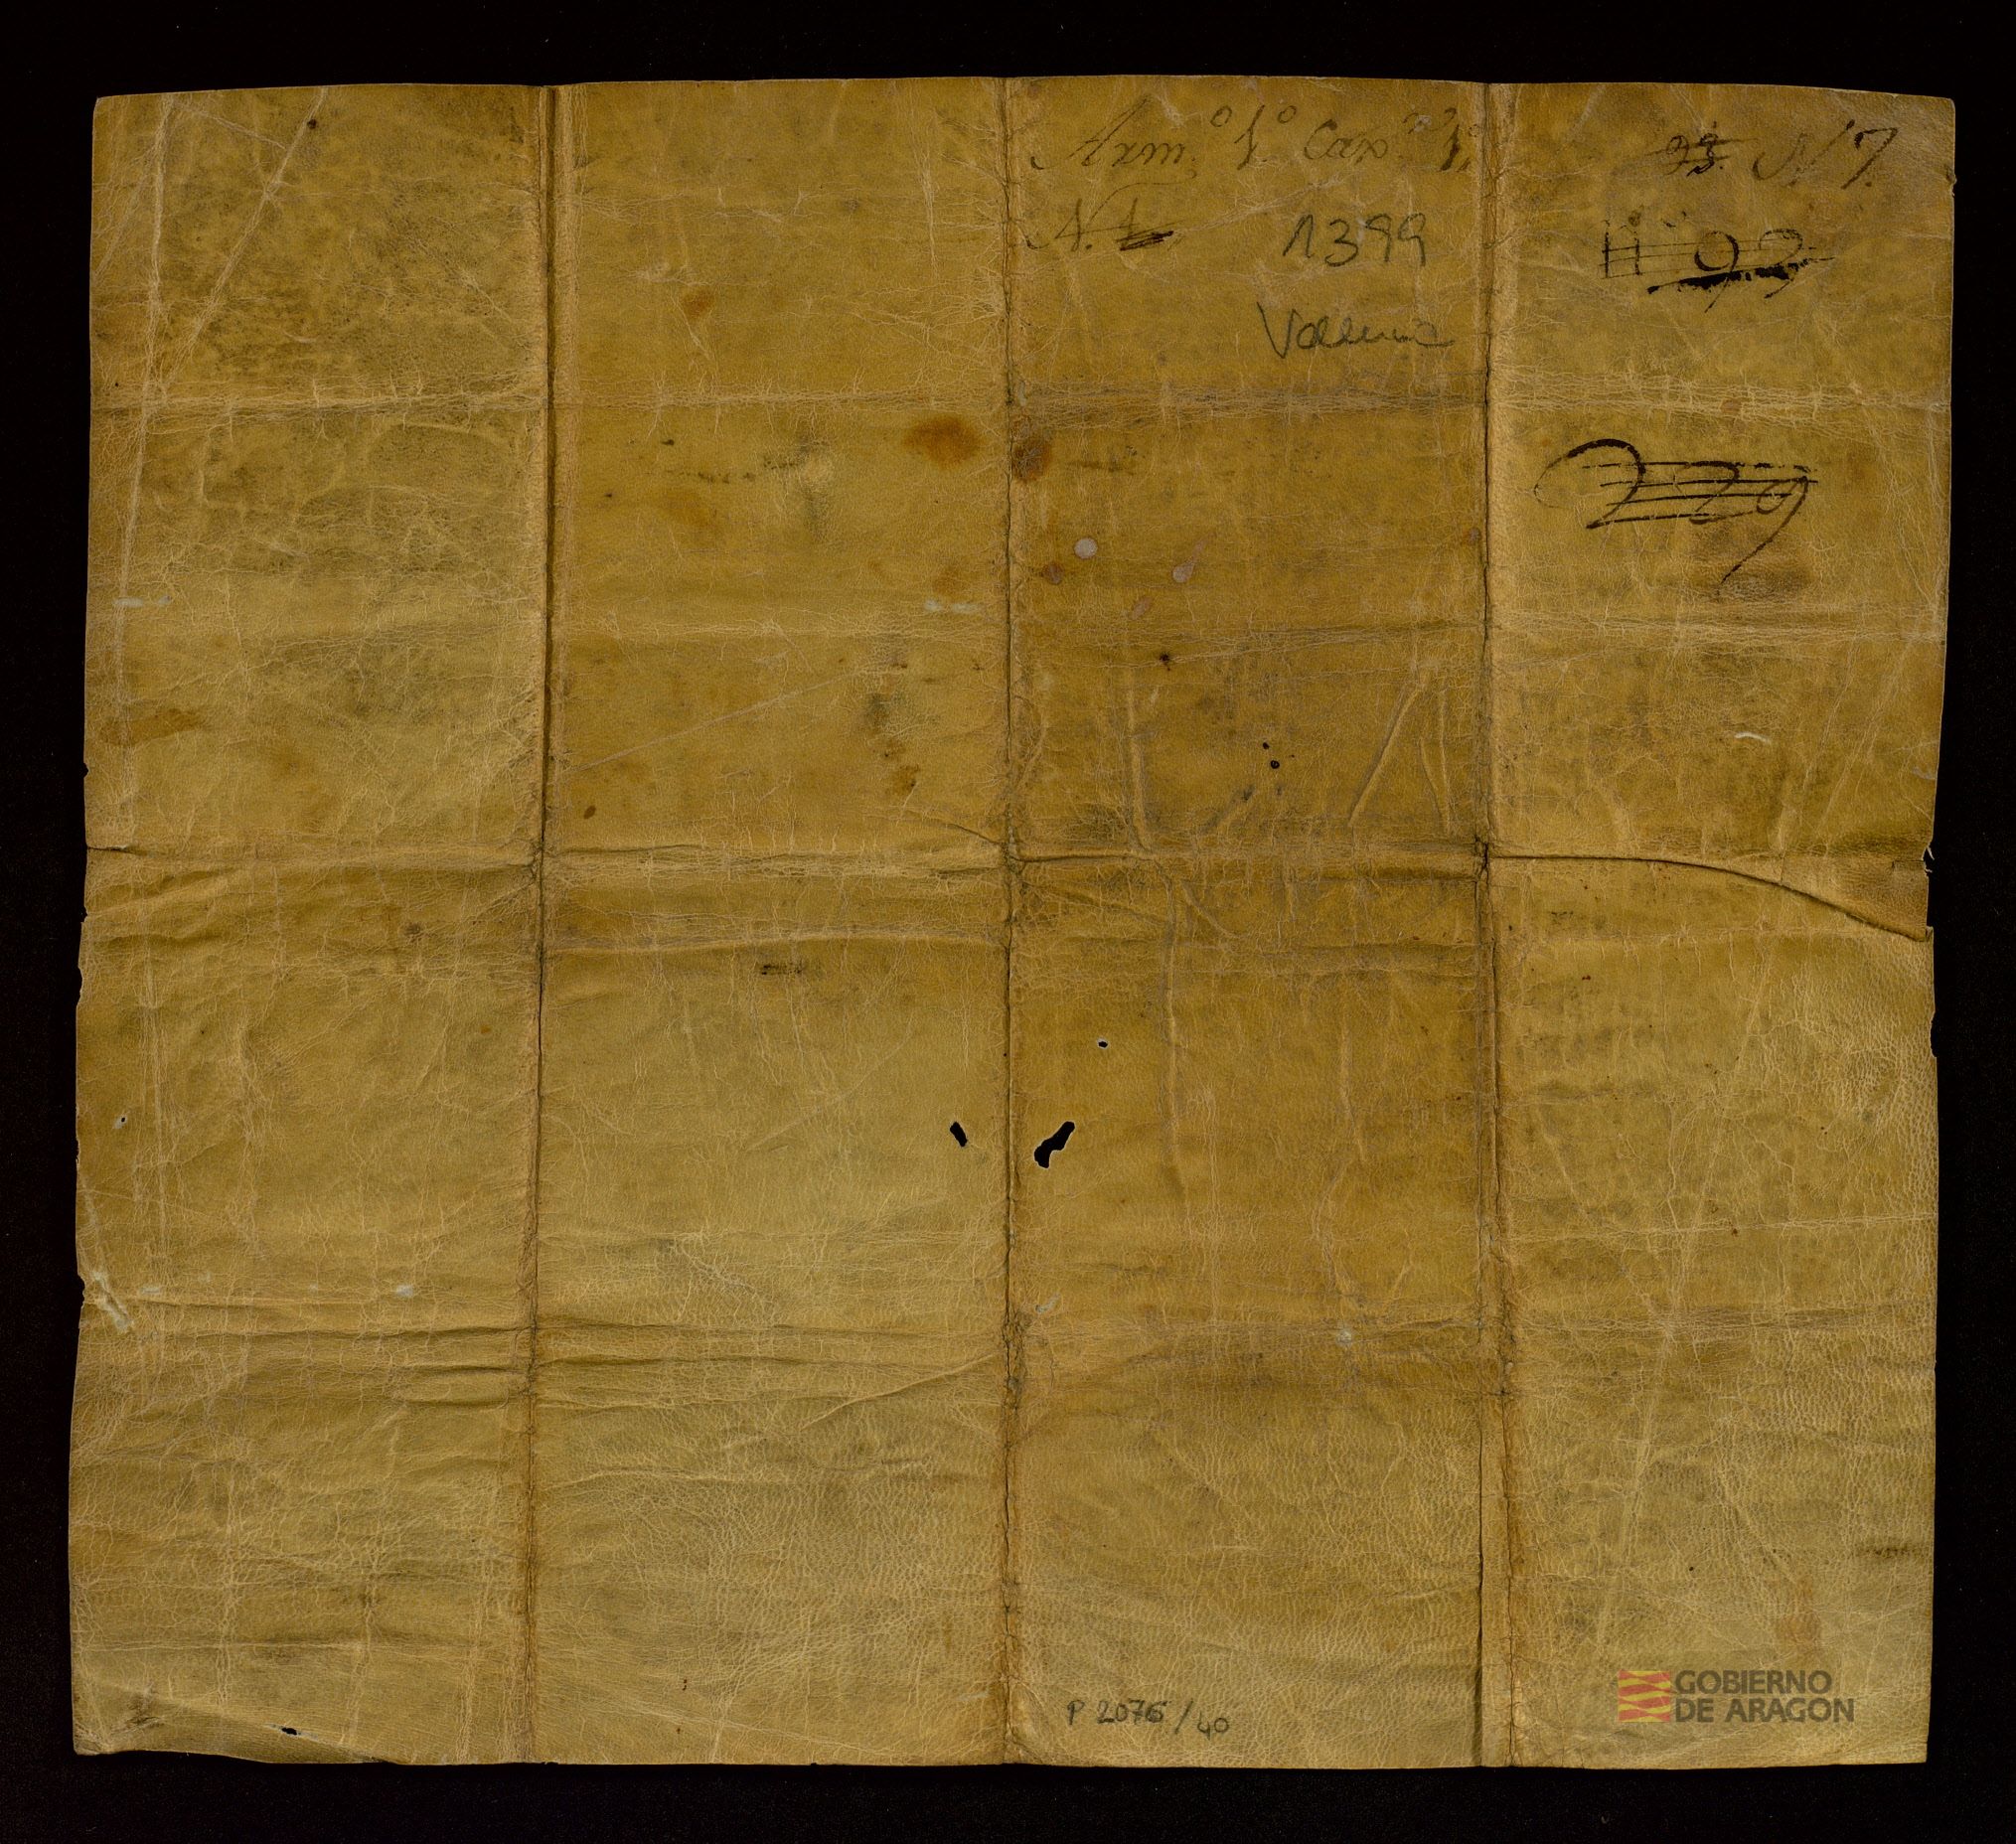 Arm.º 1.º Cax.º 1.º
N. 1
1399
Valencia
23. N 7.
nº 99
229
P 2076 / 40
GOBIERNO
DE ARAGON